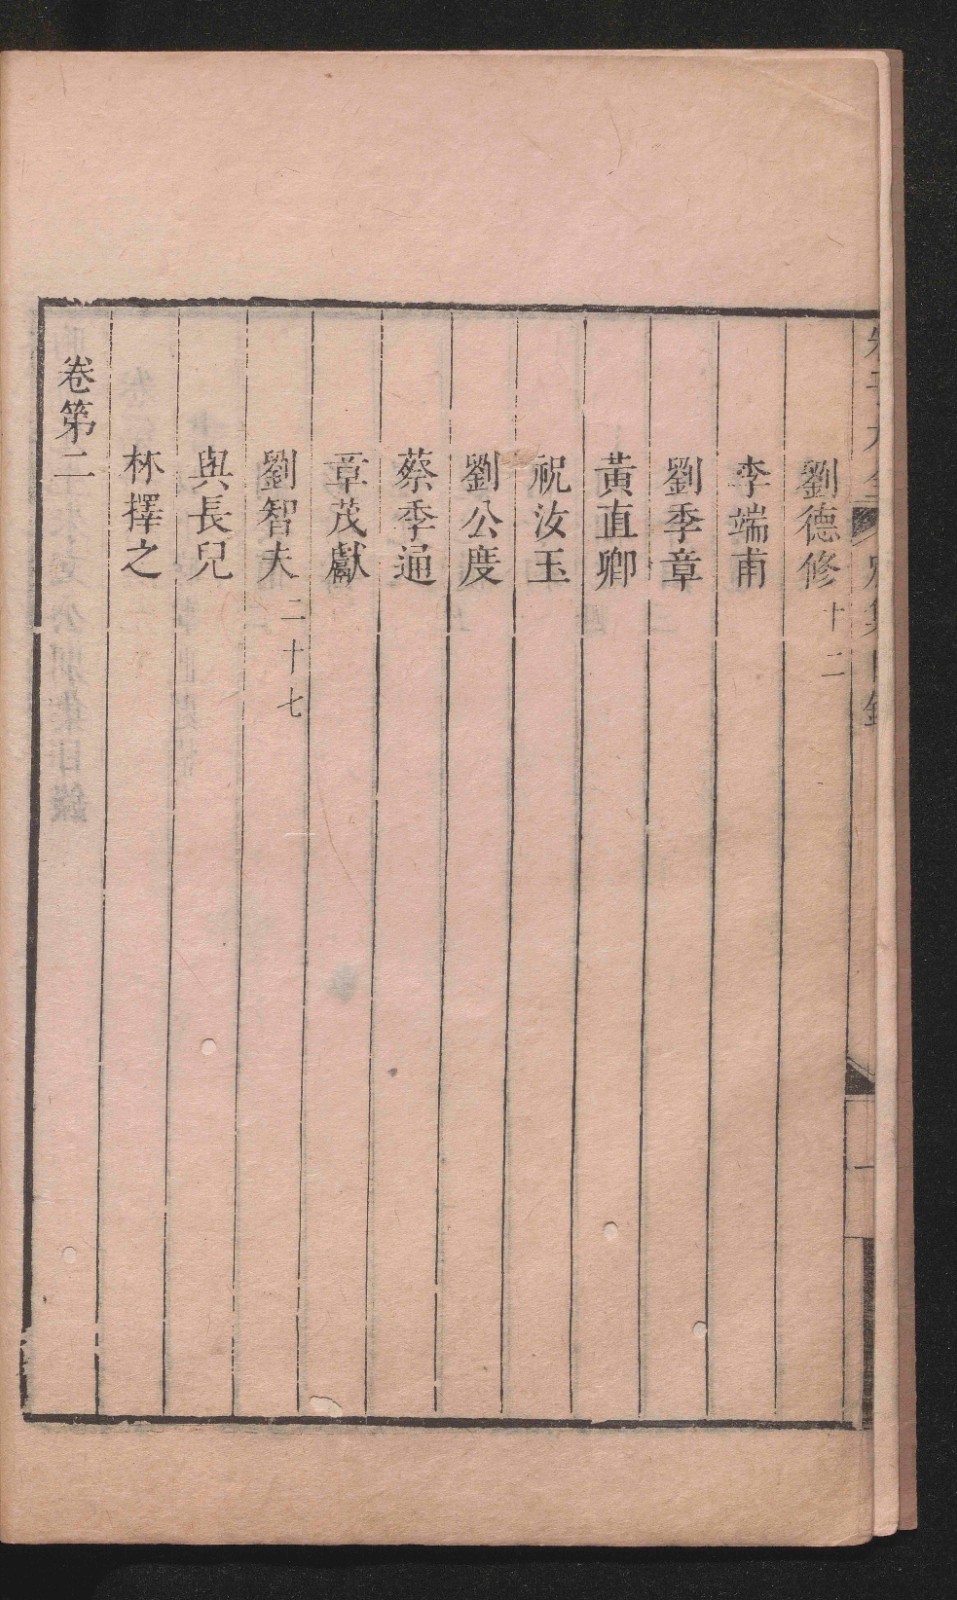 劉德修十二
李端甫
劉季章
黃直卿
祝汝玉
劉公度
蔡季通
章茂獻
劉智夫二十七
與長兒
林擇之
卷第二
一